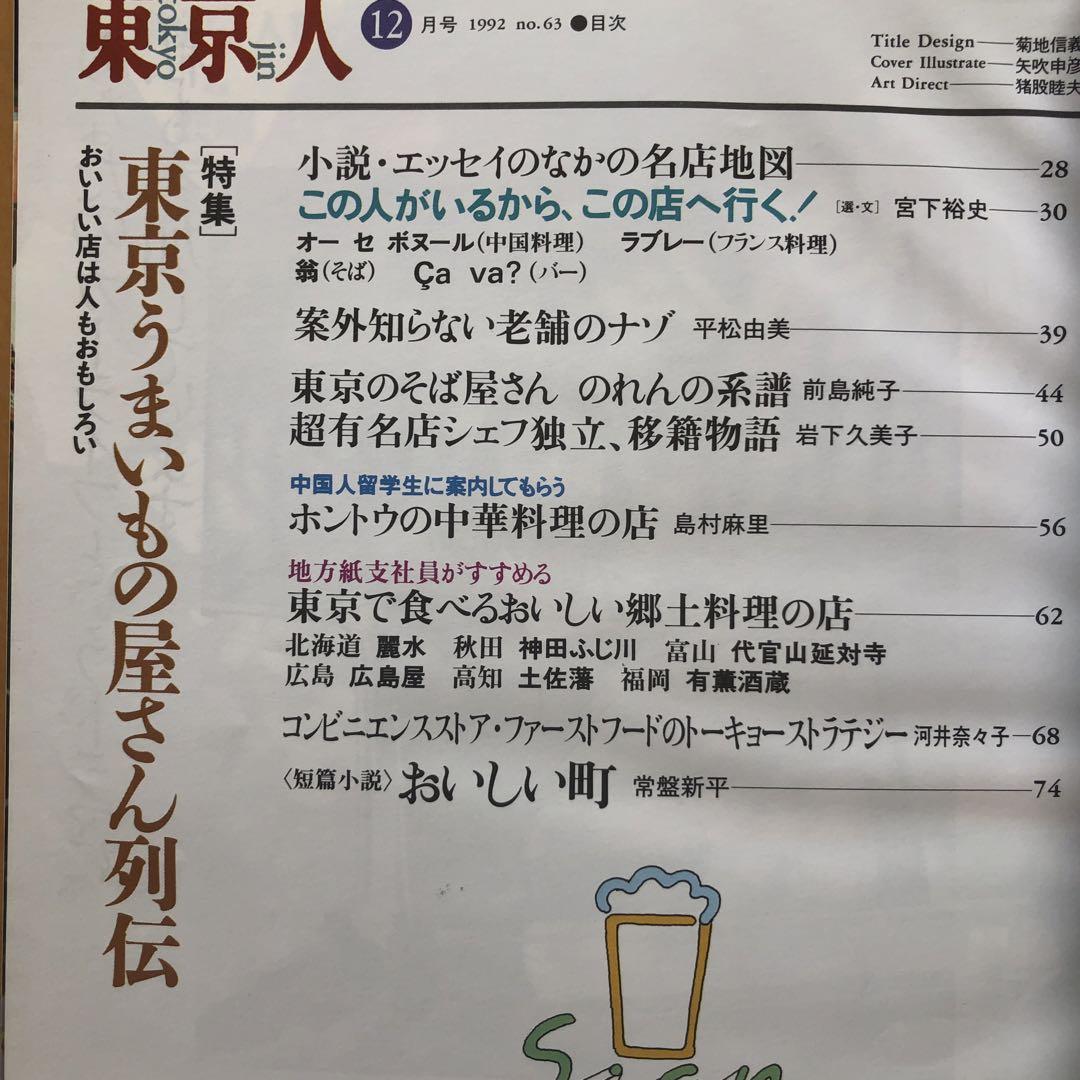 東京人
tokyo
jin
12月号 1992 no.63 ●目次
Title Design──菊地信義
Cover Illustrate──矢吹申彦
Art Direct──猪股睦夫
[特集]
東京うまいもの屋さん列伝
おいしい店は人もおもしろい
小説・エッセイのなかの名店地図──28
この人がいるから、この店へ行く！ [選・文] 宮下裕史──30
オー セ ボヌール(中国料理) ラブレー(フランス料理)
翁(そば) Ça va?(バー)
案外知らない老舗のナゾ 平松由美──39
東京のそば屋さん のれんの系譜 前島純子──44
超有名店シェフ独立、移籍物語 岩下久美子──50
中国人留学生に案内してもらう
ホントウの中華料理の店 島村麻里──56
地方紙支社員がすすめる
東京で食べるおいしい郷土料理の店──62
北海道 麗水 秋田 神田ふじ川 富山 代官山延対寺
広島 広島屋 高知 土佐藩 福岡 有薫酒蔵
コンビニエンスストア・ファーストフードのトーキョーストラテジー 河井奈々子─68
〈短篇小説〉おいしい町 常盤新平──74